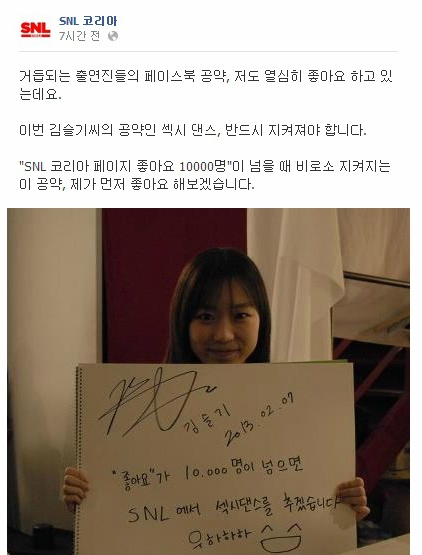 SNL KOREA
SNL 코리아
7시간 전
거듭되는 출연진들의 페이스북 공약, 저도 열심히 좋아요 하고 있
는데요.
이번 김슬기씨의 공약인 섹시 댄스, 반드시 지켜져야 합니다.
"SNL 코리아 페이지 좋아요 10000명"이 넘을 때 비로소 지켜지는
이 공약, 제가 먼저 좋아요 해보겠습니다.
김슬기
2013.02.07
"좋아요"가 10.000명이 넘으면
SNL에서 섹시댄스를 추겠습니다
우하하하